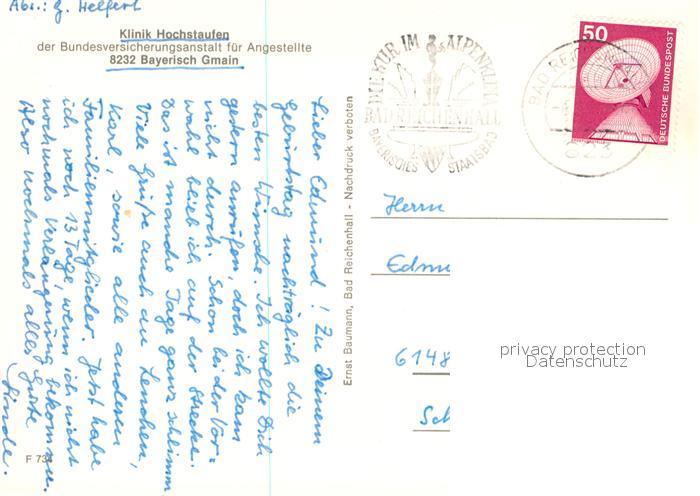 Abs.: G. Helfert
Klinik Hochstaufen
der Bundesversicherungsanstalt für Angestellte
8232 Bayerisch Gmain
Lieber Edmund! Zu Deinem
Geburtstag nachträglich die
besten Wünsche. Ich wollte Dich
gestern anrufen, doch ich kam
nicht durch. Schon bei der Vor-
wahl blieb ich auf der Strecke.
Das ist manche Tage ganz schlimm
Viele Grüße auch an Lenchen,
Karl, sowie alle anderen
Familienmitglieder. Jetzt habe
ich noch 13 Tage, wenn ich nicht
nochmals Verlängerung bekomme.
Also nochmals alles Gute
F 734
Ernst Baumann, Bad Reichenhall - Nachdruck verboten
DIE KUR IM ALPENKLIMA
BAD REICHENHALL
BAYERISCHES STAATSBAD
BAD REICHENHALL
823
50
DEUTSCHE BUNDESPOST
Herrn
Edmu
6148
Sch
privacy protection
Datenschutz